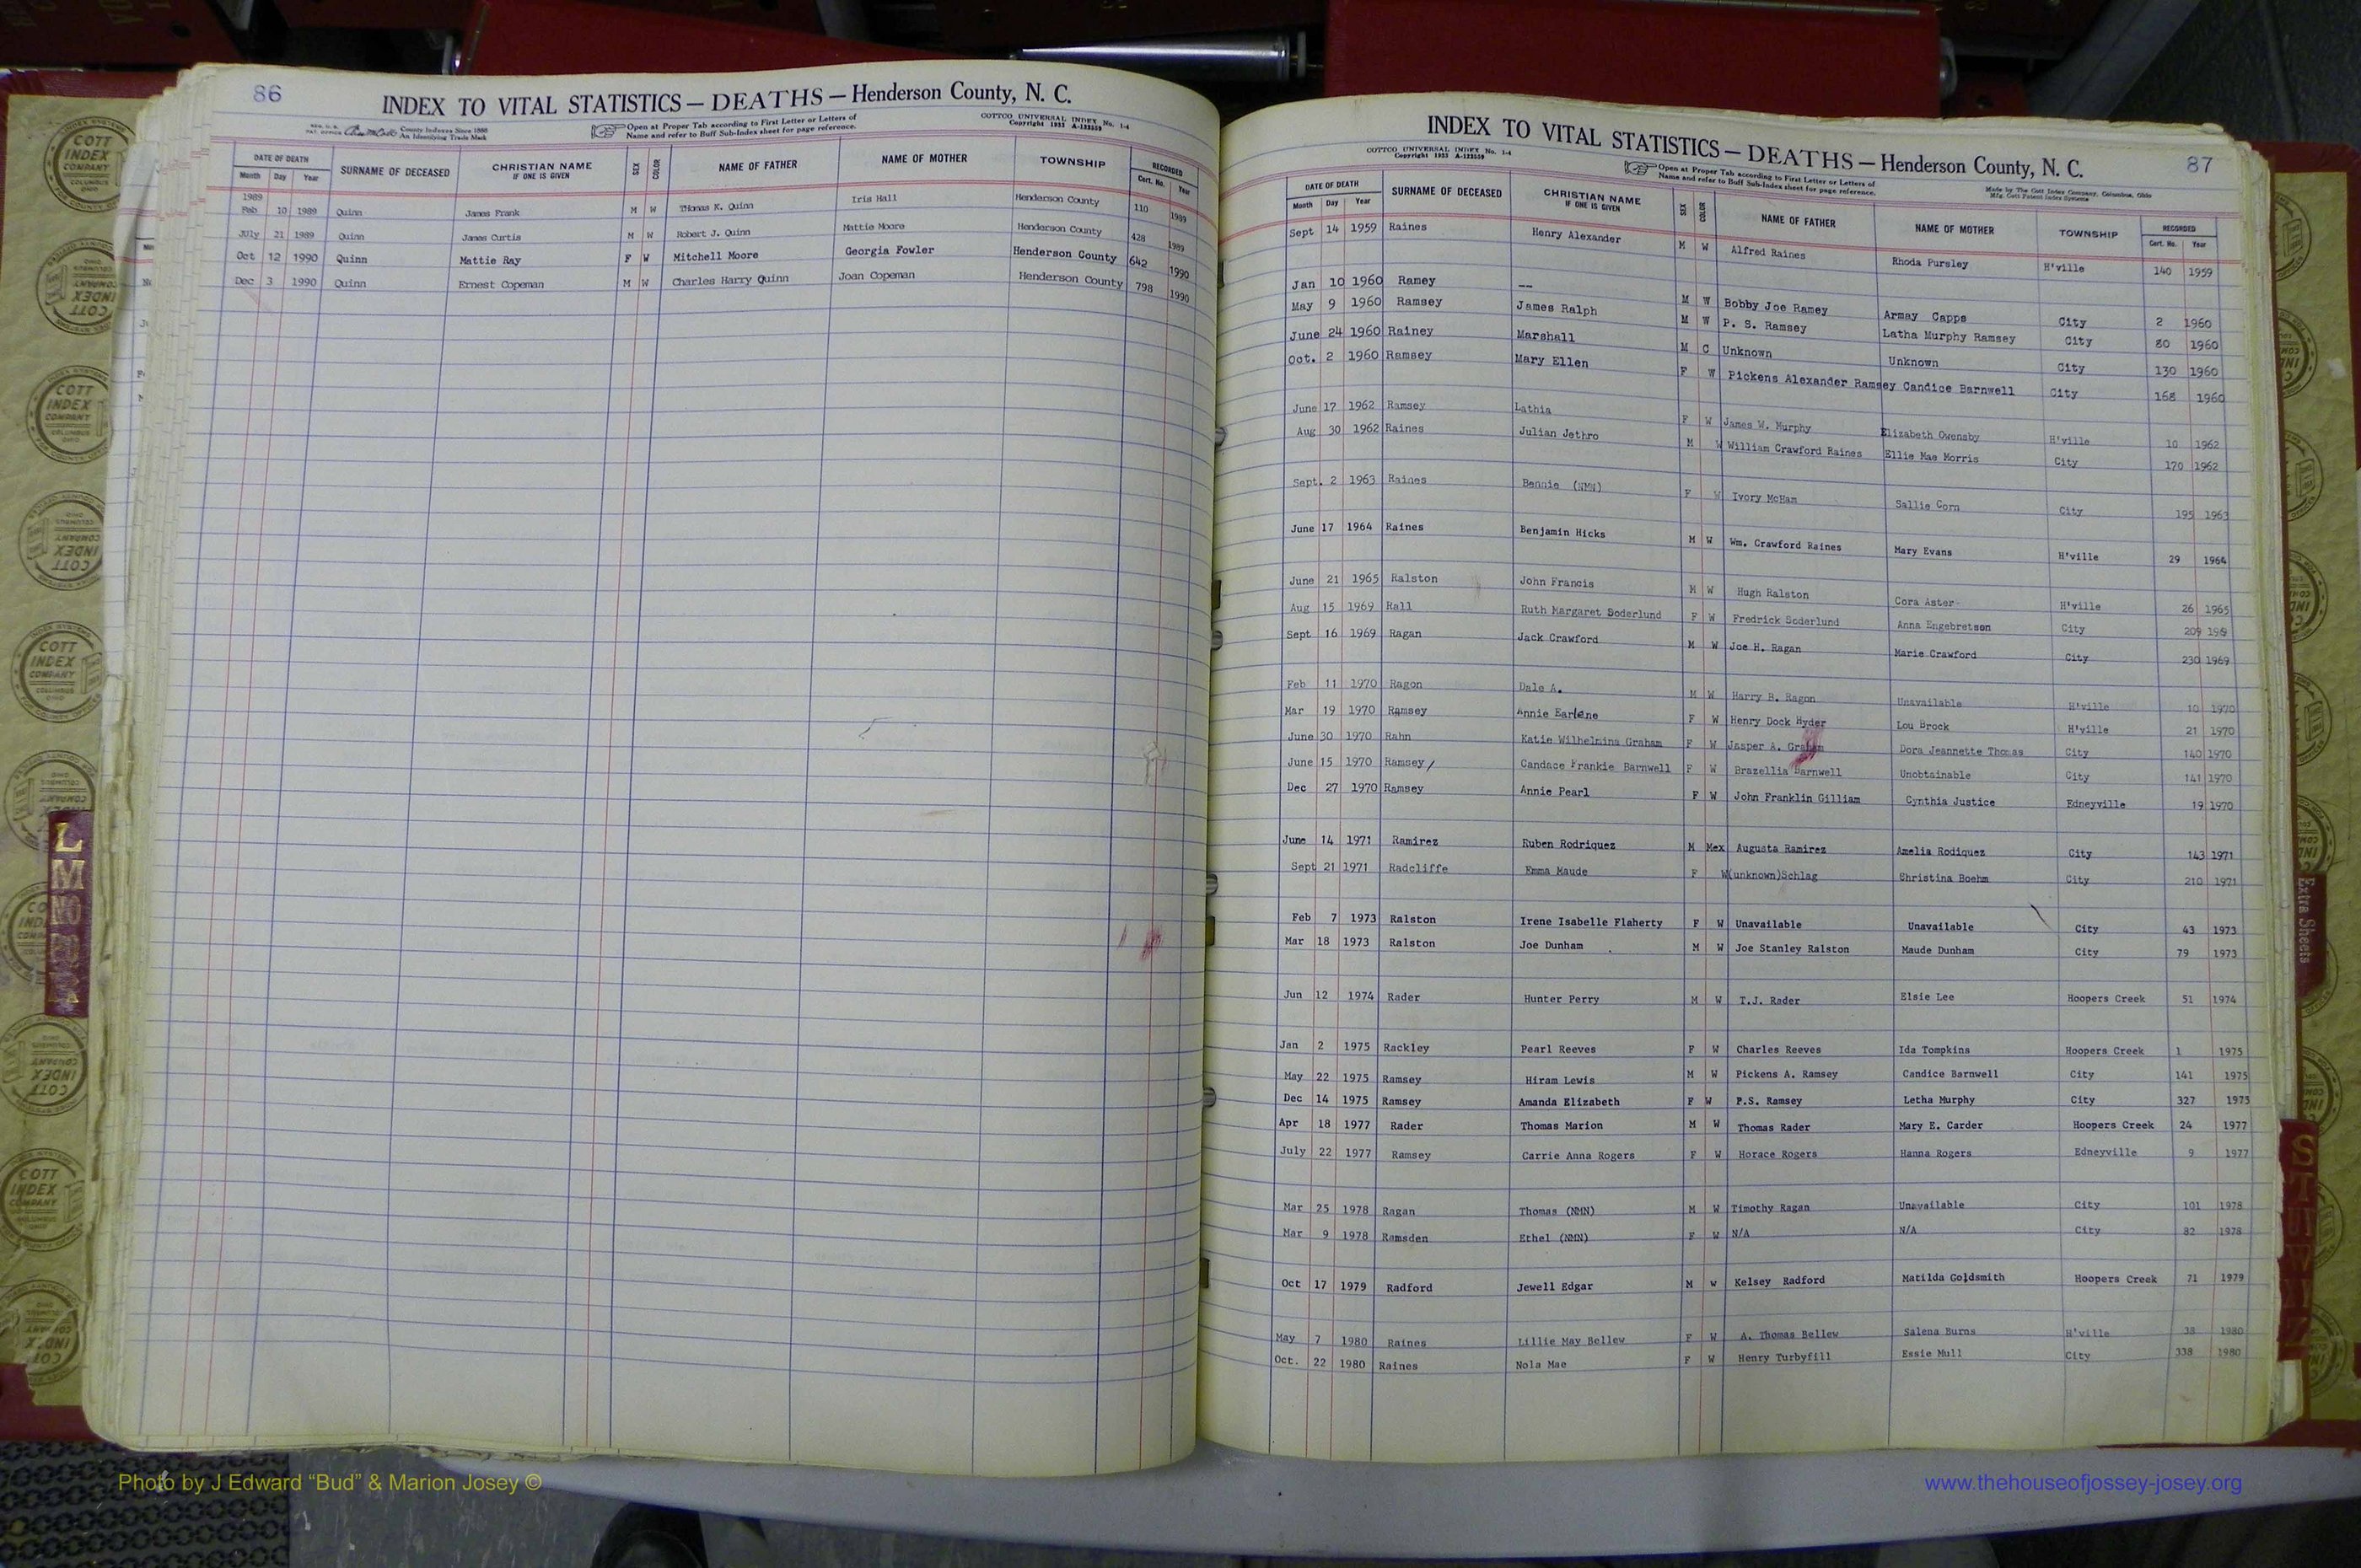 86
INDEX TO VITAL STATISTICS — DEATHS — Henderson County, N. C.
County Indexes Since 1888
An Identifying Trade Mark
Open at Proper Tab according to First Letter or Letters of
Name and refer to Buff Sub-Index sheet for page reference.
COTTCO UNIVERSAL INDEX No. 1-4
Copyright 1933 A-123359
DATE OF DEATH SURNAME OF DECEASED CHRISTIAN NAME IF ONE IS GIVEN SEX COLOR NAME OF FATHER NAME OF MOTHER TOWNSHIP RECORDED
Month Day Year Cert. No. Year
1989
Feb 10 1989 Quinn James Frank M W Thomas K. Quinn Iris Hall Henderson County 110 1989
July 21 1989 Quinn James Curtis M W Robert J. Quinn Mattie Moore Henderson County 428 1989
Oct 12 1990 Quinn Mattie Ray F W Mitchell Moore Georgia Fowler Henderson County 642 1990
Dec 3 1990 Quinn Ernest Copeman M W Charles Harry Quinn Joan Copeman Henderson County 798 1990
INDEX TO VITAL STATISTICS — DEATHS — Henderson County, N. C. 87
COTTCO UNIVERSAL INDEX No. 1-4
Copyright 1933 A-123359
Open at Proper Tab according to First Letter or Letters of
Name and refer to Buff Sub-Index sheet for page reference.
Made by The Cott Index Company, Columbus, Ohio
Mfg. Cott Patent Index Systems
DATE OF DEATH SURNAME OF DECEASED CHRISTIAN NAME IF ONE IS GIVEN SEX COLOR NAME OF FATHER NAME OF MOTHER TOWNSHIP RECORDED
Month Day Year Cert. No. Year
Sept 14 1959 Raines Henry Alexander M W Alfred Raines Rhoda Pursley H'ville 140 1959
Jan 10 1960 Ramey -- M W Bobby Joe Ramey Armay Capps City 2 1960
May 9 1960 Ramsey James Ralph M W P. S. Ramsey Latha Murphy Ramsey City 80 1960
June 24 1960 Rainey Marshall M C Unknown Unknown City 130 1960
Oct. 2 1960 Ramsey Mary Ellen F W Pickens Alexander Ramsey Candice Barnwell City 168 1960
June 17 1962 Ramsey Lathia F W James W. Murphy Elizabeth Owensby H'ville 10 1962
Aug 30 1962 Raines Julian Jethro M W William Crawford Raines Ellie Mae Morris City 170 1962
Sept. 2 1963 Raines Bennie (NMN) F W Ivory McHam Sallie Corn City 195 1963
June 17 1964 Raines Benjamin Hicks M W Wm. Crawford Raines Mary Evans H'ville 29 1964
June 21 1965 Ralston John Francis M W Hugh Ralston Cora Aster H'ville 26 1965
Aug 15 1969 Rall Ruth Margaret Soderlund F W Fredrick Soderlund Anna Engebretson City 209 1969
Sept 16 1969 Ragan Jack Crawford M W Joe H. Ragan Marie Crawford City 230 1969
Feb 11 1970 Ragon Dale A. M W Harry B. Ragon Unavailable H'ville 10 1970
Mar 19 1970 Ramsey Annie Earlene F W Henry Dock Hyder Lou Brock H'ville 21 1970
June 30 1970 Rahn Katie Wilhelmina Graham F W Jasper A. Graham Dora Jeannette Thomas City 140 1970
June 15 1970 Ramsey Candace Frankie Barnwell F W Brazellia Barnwell Unobtainable City 141 1970
Dec 27 1970 Ramsey Annie Pearl F W John Franklin Gilliam Cynthia Justice Edneyville 19 1970
June 14 1971 Ramirez Ruben Rodriquez M Mex Augusta Ramirez Amelia Rodiquez City 143 1971
Sept 21 1971 Radcliffe Emma Maude F W (unknown)Schlag Christina Boehm City 210 1971
Feb 7 1973 Ralston Irene Isabelle Flaherty F W Unavailable Unavailable City 43 1973
Mar 18 1973 Ralston Joe Dunham M W Joe Stanley Ralston Maude Dunham City 79 1973
Jun 12 1974 Rader Hunter Perry M W T.J. Rader Elsie Lee Hoopers Creek 51 1974
Jan 2 1975 Rackley Pearl Reeves F W Charles Reeves Ida Tompkins Hoopers Creek 1 1975
May 22 1975 Ramsey Hiram Lewis M W Pickens A. Ramsey Candice Barnwell City 141 1975
Dec 14 1975 Ramsey Amanda Elizabeth F W P.S. Ramsey Letha Murphy City 327 1975
Apr 18 1977 Rader Thomas Marion M W Thomas Rader Mary E. Carder Hoopers Creek 24 1977
July 22 1977 Ramsey Carrie Anna Rogers F W Horace Rogers Hanna Rogers Edneyville 9 1977
Mar 25 1978 Ragan Thomas (NMN) M W Timothy Ragan Unavailable City 101 1978
Mar 9 1978 Ramsden Ethel (NMN) F W N/A N/A City 82 1978
Oct 17 1979 Radford Jewell Edgar M W Kelsey Radford Matilda Goldsmith Hoopers Creek 71 1979
May 7 1980 Raines Lillie May Bellew F W A. Thomas Bellew Salena Burns H'ville 38 1980
Oct. 22 1980 Raines Nola Mae F W Henry Turbyfill Essie Mull City 338 1980
COTT INDEX COMPANY COLUMBUS OHIO
L
M
Extra Sheets
S
Photo by J Edward “Bud” & Marion Josey ©
www.thehouseofjossey-josey.org